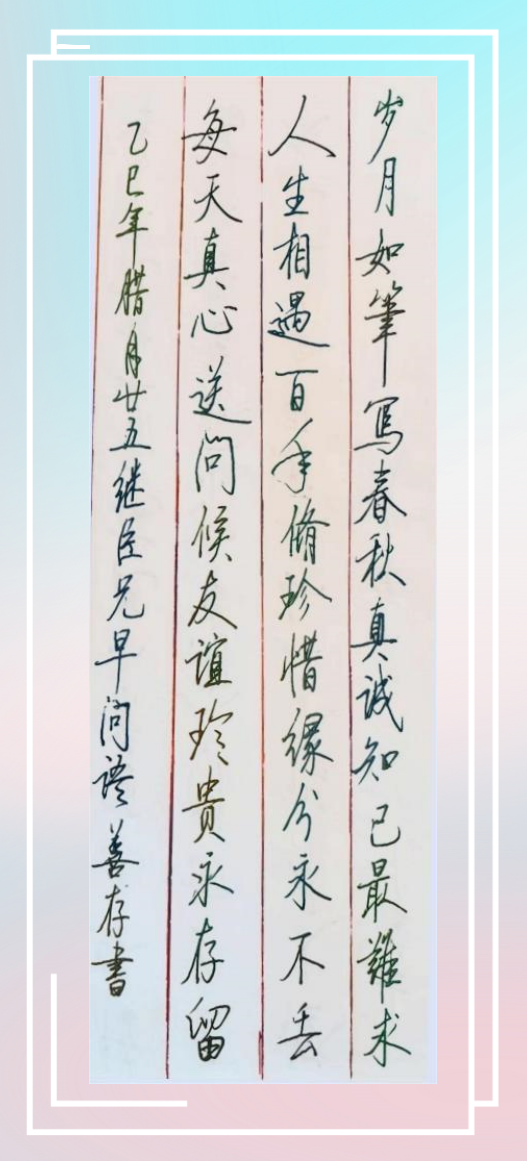 岁月如筆写春秋真诚知己最難求
人生相遇百年脩珍惜缘分永不丢
每天真心送问候友谊珍貴永存留
乙巳年腊月廿五继臣兄早问语善存書